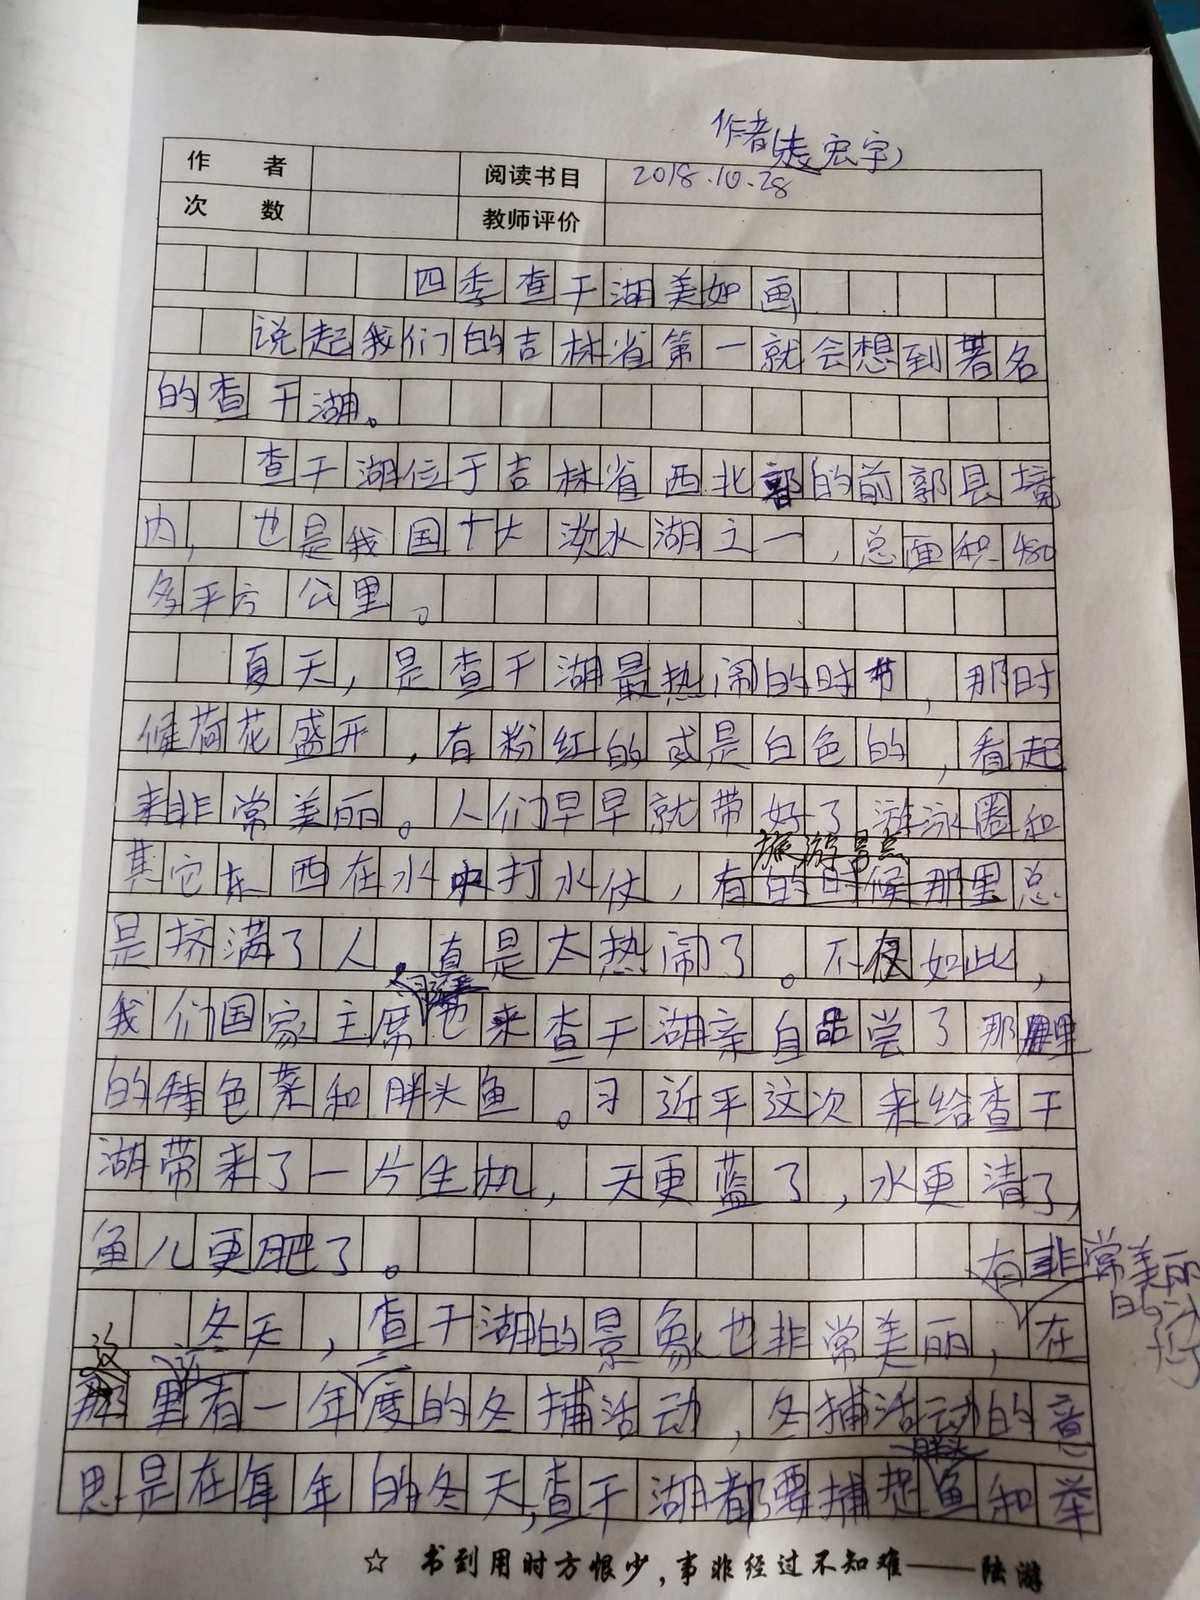 作者(袁宏宇)
作 者 阅读书目 2018.10.28
次 数 教师评价
四季查干湖美如画
说起我们的吉林省第一就会想到著名
的查干湖。
查干湖位于吉林省西北部的前郭县境
内,也是我国十大淡水湖之一,总面积480
多平方公里。
夏天,是查干湖最热闹的时节,那时
候荷花盛开,有粉红的或是白色的,看起
来非常美丽。人们早早就带好了游泳圈和
旅游景点
其它东西在水中打水仗,有的时候那里总
是挤满了人,真是太热闹了。不仅如此,
我们国家主席也来查干湖亲自品尝了那里
的特色菜和胖头鱼。习近平这次来给查干
湖带来了一片生机,天更蓝了,水更清了,
鱼儿更肥了。
有非常美丽
的冰
灯
冬天,查干湖的景象也非常美丽,在
这
那里有一年一度的冬捕活动,冬捕活动的意
胖头
思是在每年的冬天,查干湖都要捕捉鱼和举
☆ 书到用时方恨少,事非经过不知难——陆游